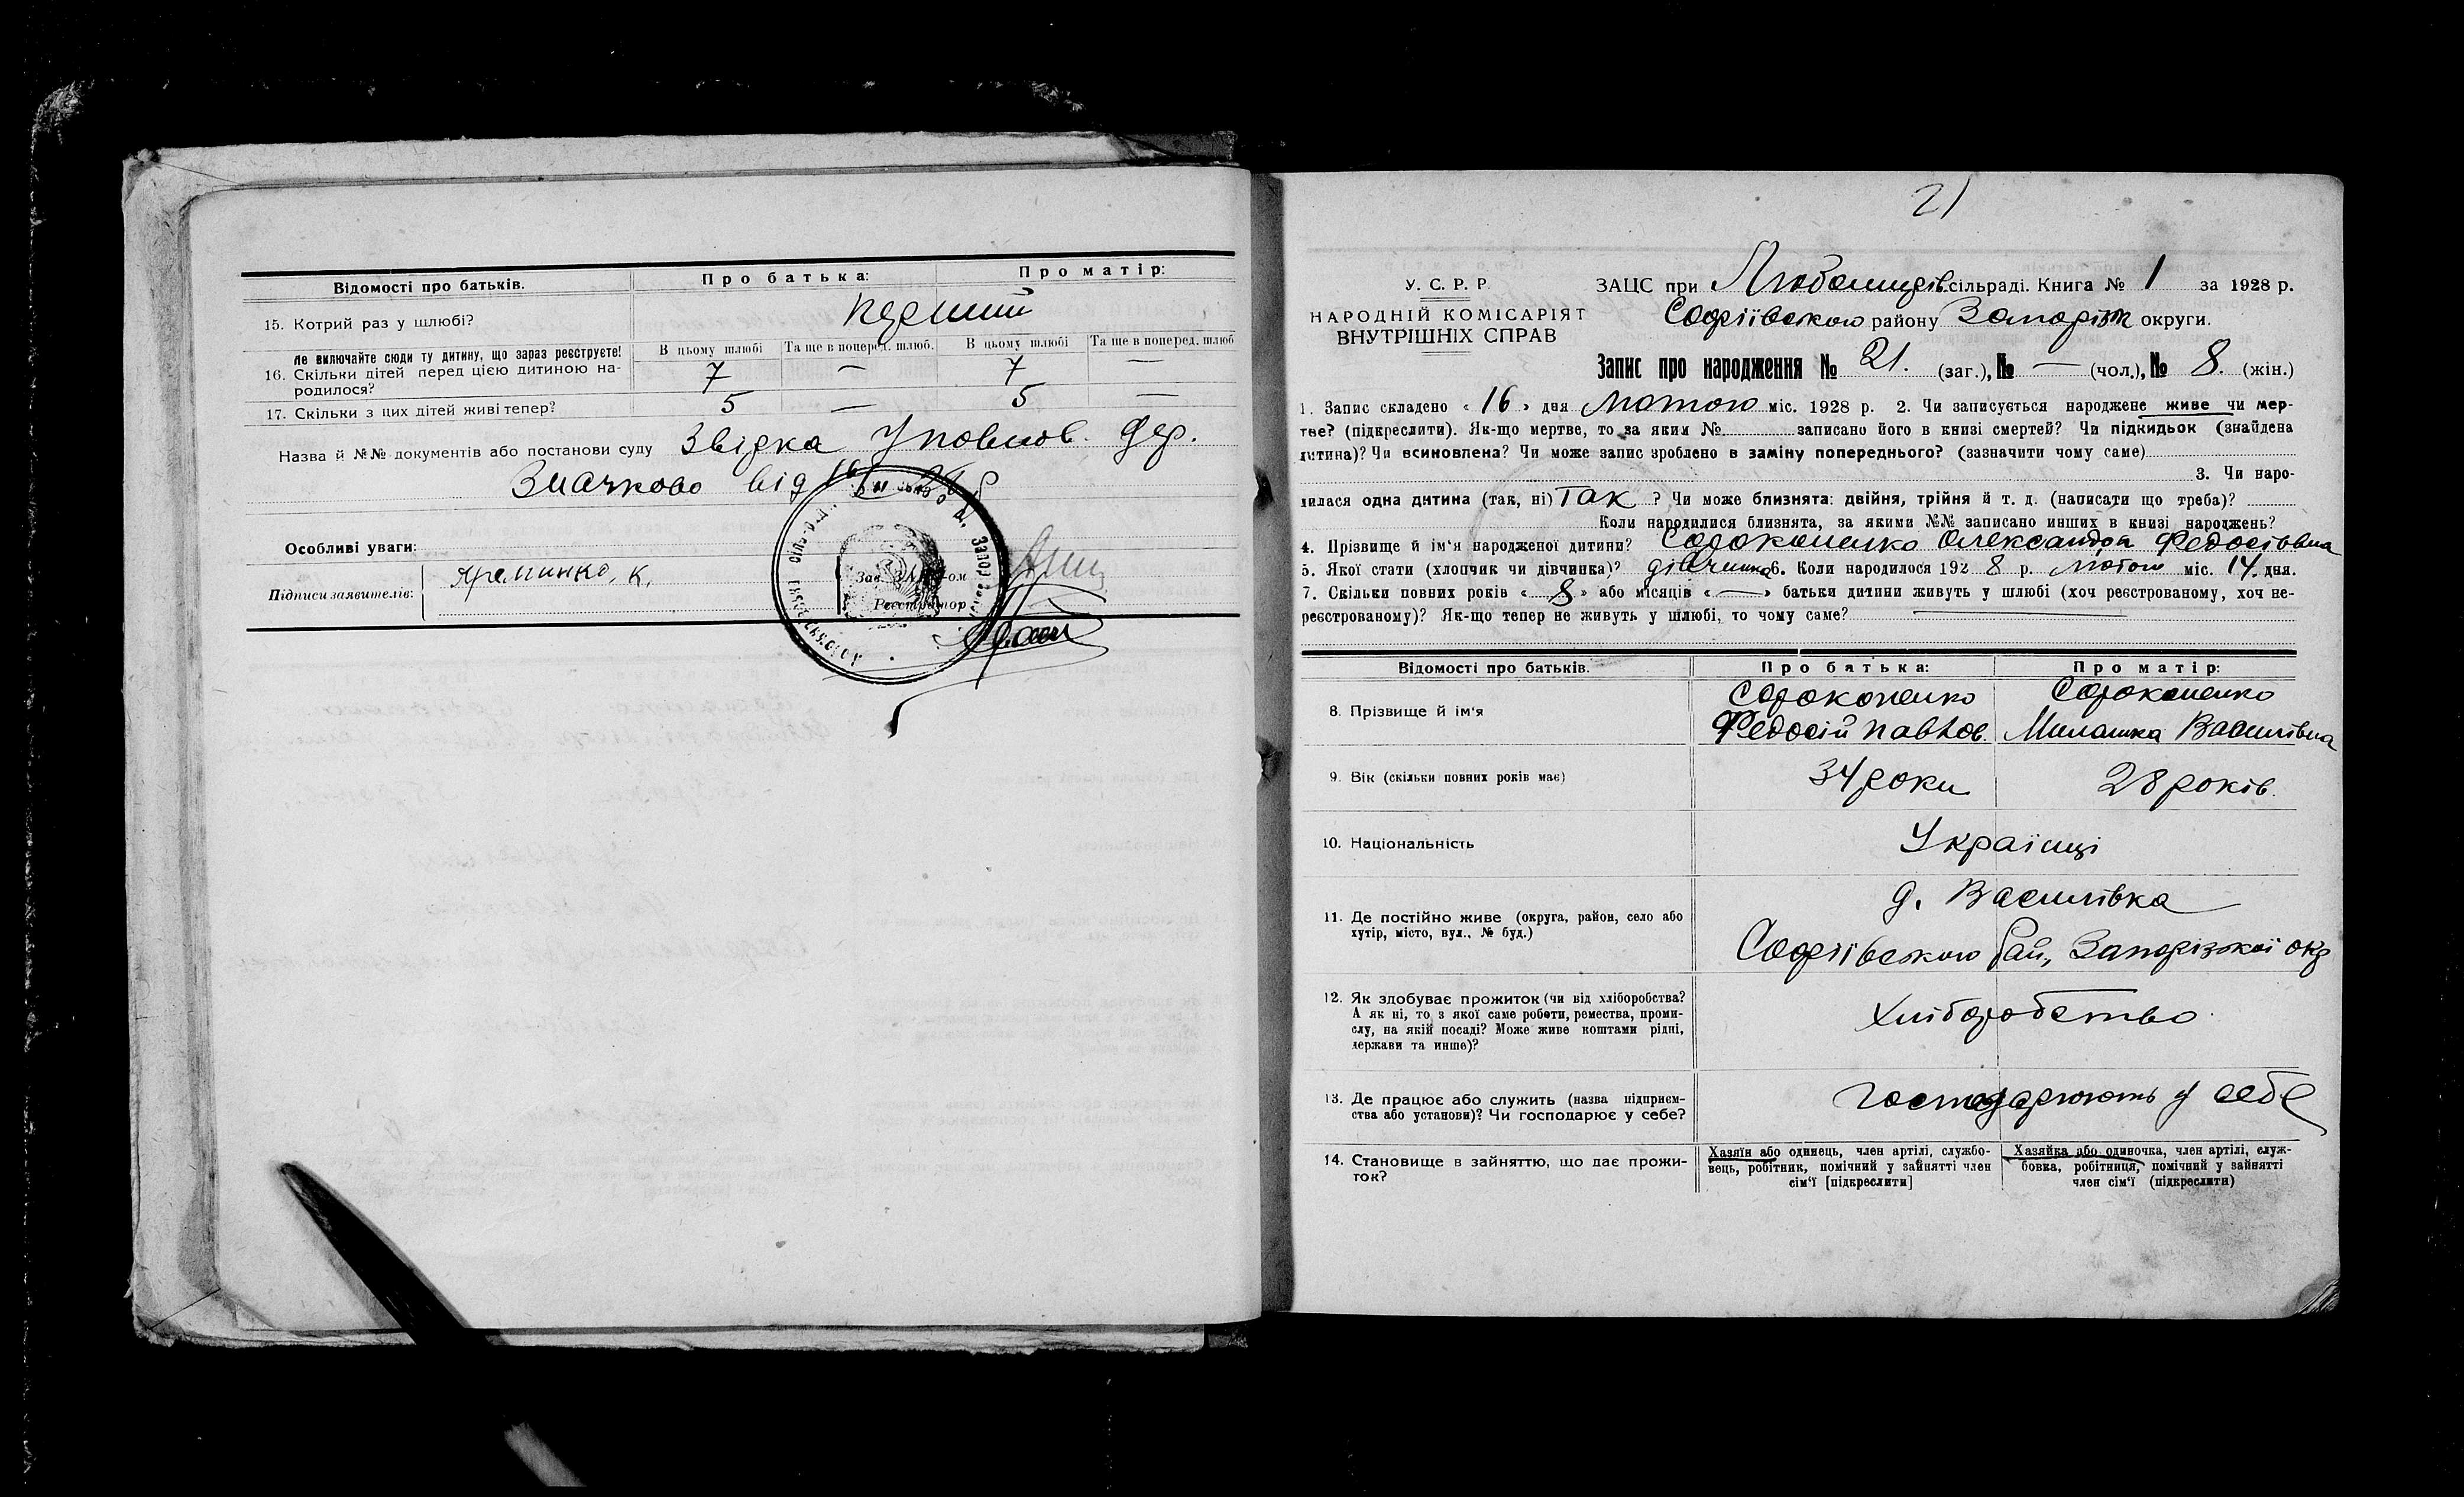 Відомості про батьків.
Про батька:
Про матір:
15. Котрий раз у шлюбі?
перший
Не включайте сюди ту дитину, що зараз реєструєте!
16. Скільки дітей перед цією дитиною на-
родилося?
В цьому шлюбі
Та ще в поперед. шлюб.
В цьому шлюбі
Та ще в поперед. шлюб
7 — 7 —
17. Скільки з цих дітей живі тепер?
5 — 5 —
Назва й №№ документів або постанови суду Звідка Уповнов. дер.
Значково від 16
Особливі уваги:
Підписи заявителів:
Яременко, К.
Зав. ЗАГС-ом
Реєстратор
21
У. С. Р. Р.
НАРОДНІЙ КОМІСАРІЯТ
ВНУТРІШНІХ СПРАВ
ЗАЦС при Любомирів. сільраді. Книга № 1 за 1928 р.
Софіївського району Запоріж округи.
Запис про народження № 21. (заг.), № — (чол.), № 8. (жін.)
1. Запис складено «16» дня Лютого міс. 1928 р. 2. Чи записується народжене живе чи мер-
тве? (підкреслити). Як-що мертве, то за яким № записано його в книзі смертей? Чи підкидьок (знайдена
дитина)? Чи всиновлена? Чи може запис зроблено в заміну попереднього? (зазначити чому саме)
3. Чи наро-
дилася одна дитина (так, ні) Так ? Чи може близнята: двійня, трійня й т. д. (написати що треба)?
Коли народилися близнята, за якими №№ записано инших в книзі народжень?
4. Прізвище й ім'я народженої дитини? Сороконенко Олександра Федосіївна
5. Якої стати (хлопчик чи дівчинка)? дівчинка 6. Коли народилося 1928 р. лютого міс. 14 дня.
7. Скільки повних років «8» або місяців «—» батьки дитини живуть у шлюбі (хоч реєстрованому, хоч не-
реєстрованому)? Як-що тепер не живуть у шлюбі, то чому саме? —
Відомості про батьків.
Про батька:
Про матір:
8. Прізвище й ім'я
Сороконенко
Федосій Павлов.
Сороконенко
Милашка Василівна
9. Вік (скільки повних років має)
34 роки
28 років.
10. Національність
Українці
11. Де постійно живе (округа, район, село або
хутір, місто, вул., № буд.)
д. Василівка
Софіївського Рай, Запорізької окр
12. Як здобуває прожиток (чи від хліборобства?
А як ні, то з якої саме роботи, ремества, проми-
слу, на якій посаді? Може живе коштами рідні,
держави та инше)?
Хліборобство
13. Де працює або служить (назва підприєм-
ства або установи)? Чи господарює у себе?
Господарюють у себе
14. Становище в зайняттю, що дає прожи-
ток?
Хазяїн або одинець, член артілі, службо-
вець, робітник, помічний у зайнятті член
сім'ї [підкреслити]
Хазяйка або одиночка, член артілі, служ-
бовка, робітниця, помічний у зайнятті
член сім'ї (підкреслити)